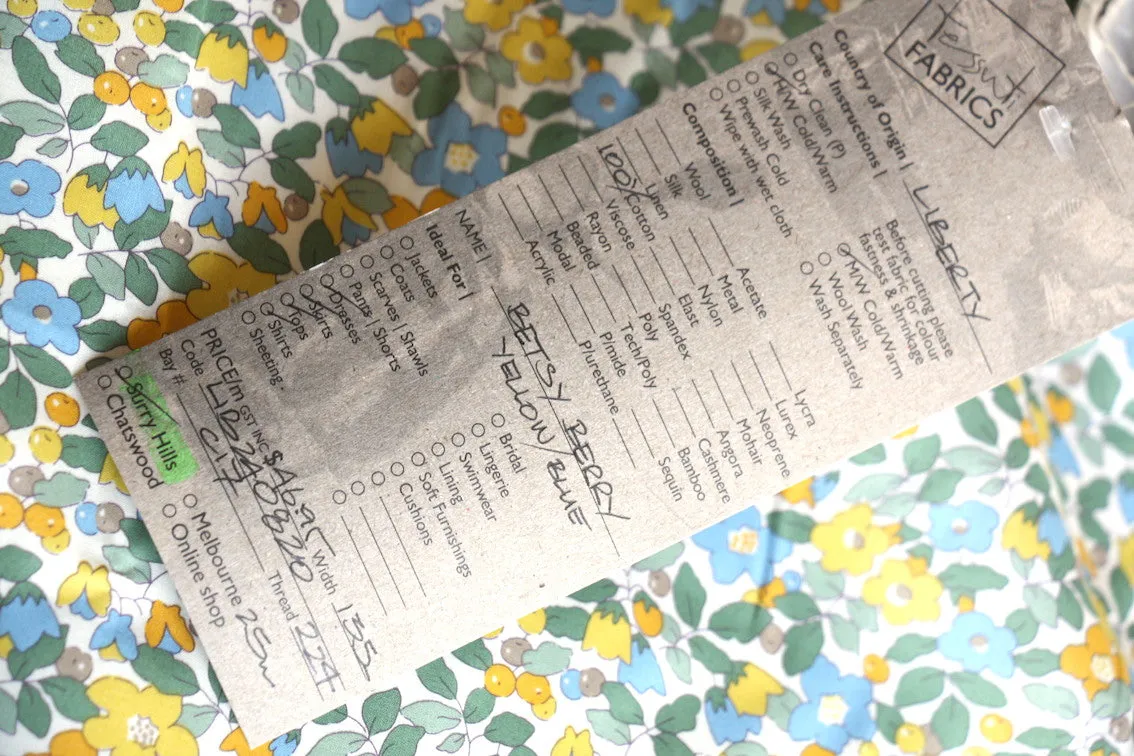 Tessuti
FABRICS
Country of Origin | LIBERTY
Care Instructions |
Before cutting please
test fabric for colour
fastness & shrinkage
Dry Clean (P)
H/W Cold/Warm
Silk Wash
Prewash Cold
Wipe with wet cloth
M/W Cold/Warm
Wool Wash
Wash Separately
Composition |
Wool
Silk
Linen
100% Cotton
Viscose
Rayon
Beaded
Modal
Acrylic
Acetate
Metal
Nylon
Elast
Spandex
Poly
Tech/Poly
P/mide
P/urethane
Lycra
Lurex
Neoprene
Mohair
Angora
Cashmere
Bamboo
Sequin
NAME | BETSY BERRY
YELLOW/BLUE
Ideal For |
Jackets
Coats
Scarves | Shawls
Pants | Shorts
Dresses
Skirts
Tops
Shirts
Sheeting
Bridal
Lingerie
Swimwear
Lining
Soft Furnishings
Cushions
PRICE/m GST INC $46.95 Width 135
Code Thread 224
Bay #
Surry Hills
Chatswood
Melbourne 25m
Online shop